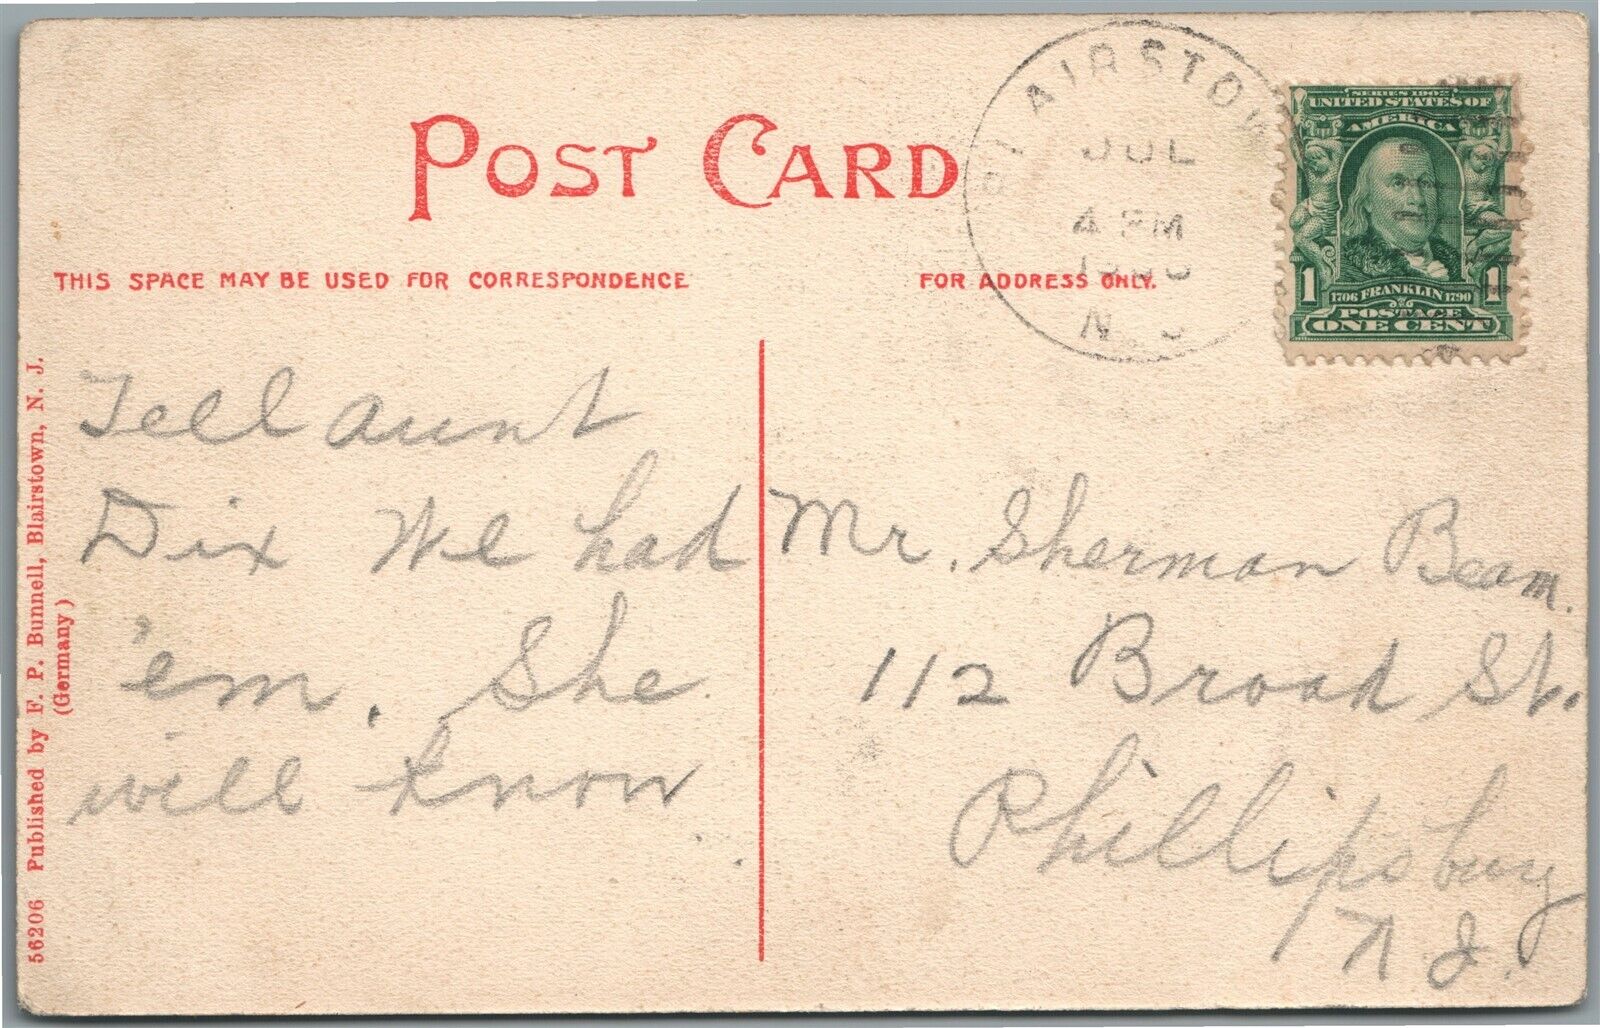 POST CARD
THIS SPACE MAY BE USED FOR CORRESPONDENCE
FOR ADDRESS ONLY.
BLAIRSTOW
JUL
4 PM
N. J
SERIES 1902
UNITED STATES OF
AMERICA
1 1706 FRANKLIN 1790 1
POSTAGE
ONE CENT
Tell Aunt
Dix We had
'em. She
will know.
Mr. Sherman Beam.
112 Broad St.
Phillipsburg
N J.
56206 Published by F. P. Bunnell, Blairstown, N. J.
(Germany)